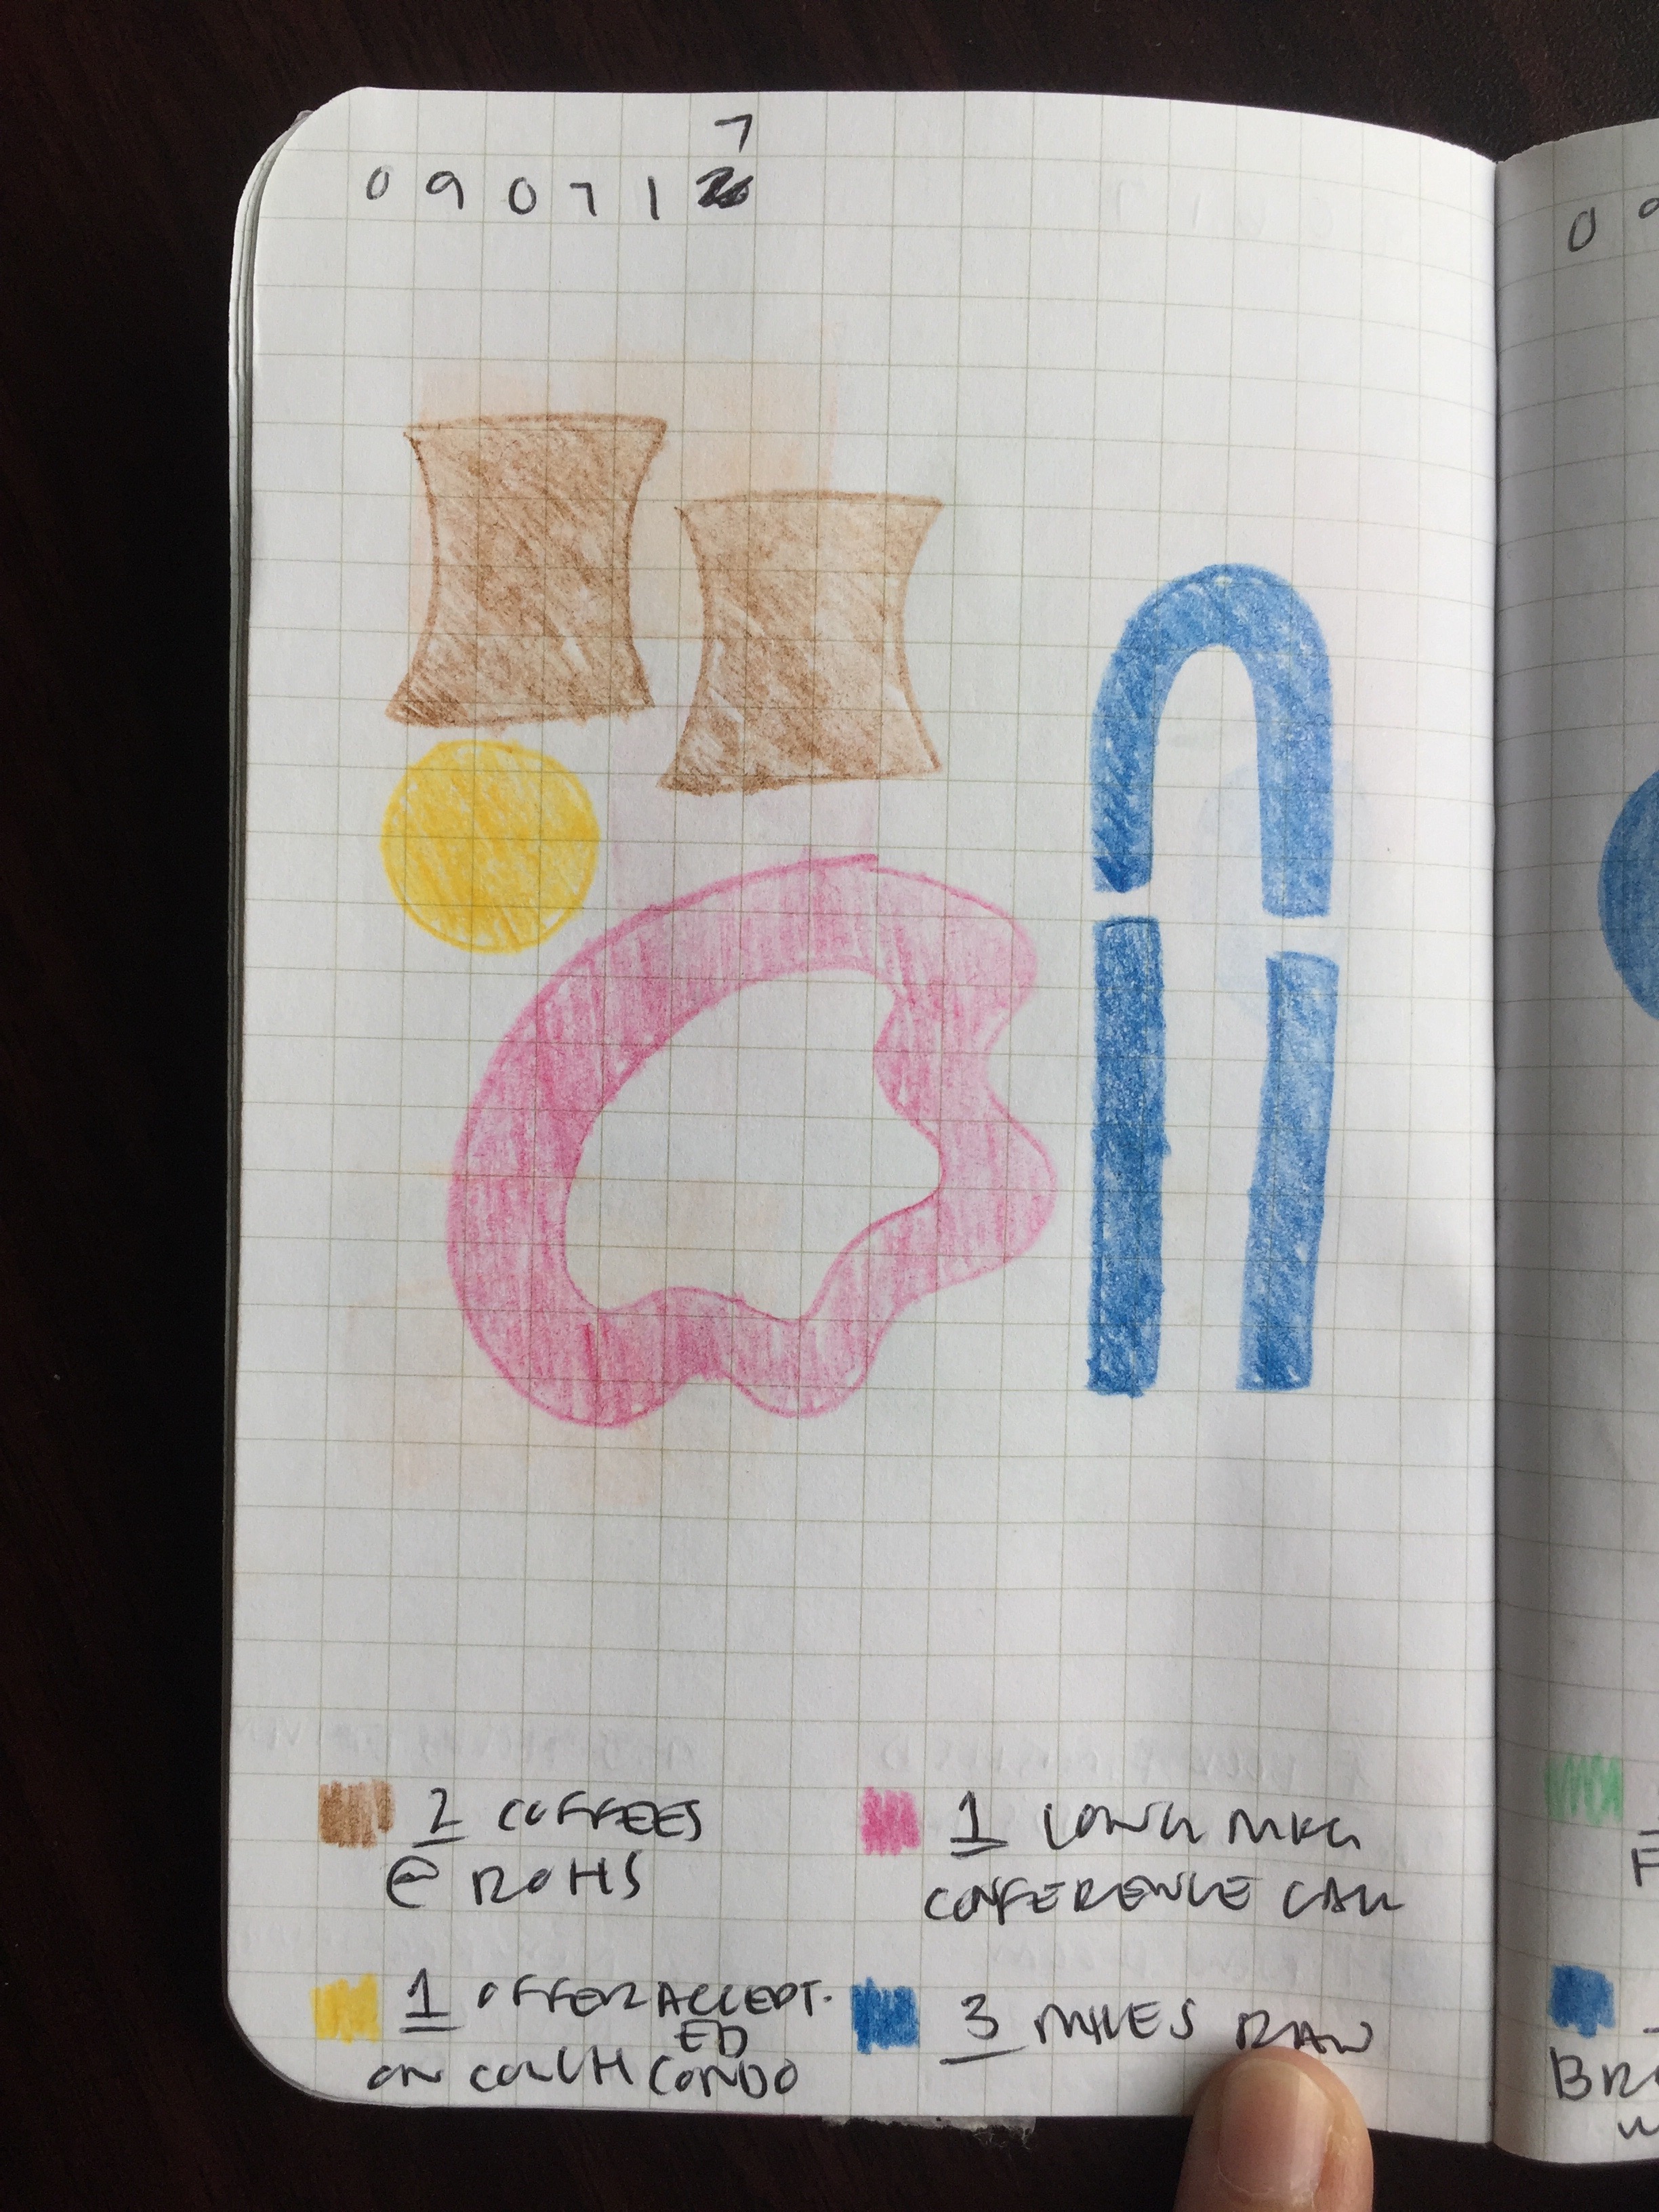 7
09071
2 COFFEES
@ ROHS
1 LONG MKG
CONFERENCE CALL
1 OFFER ACCEPT-
ED
ON COUCH CONDO
3 MILES RAN
0 9
F
BRO